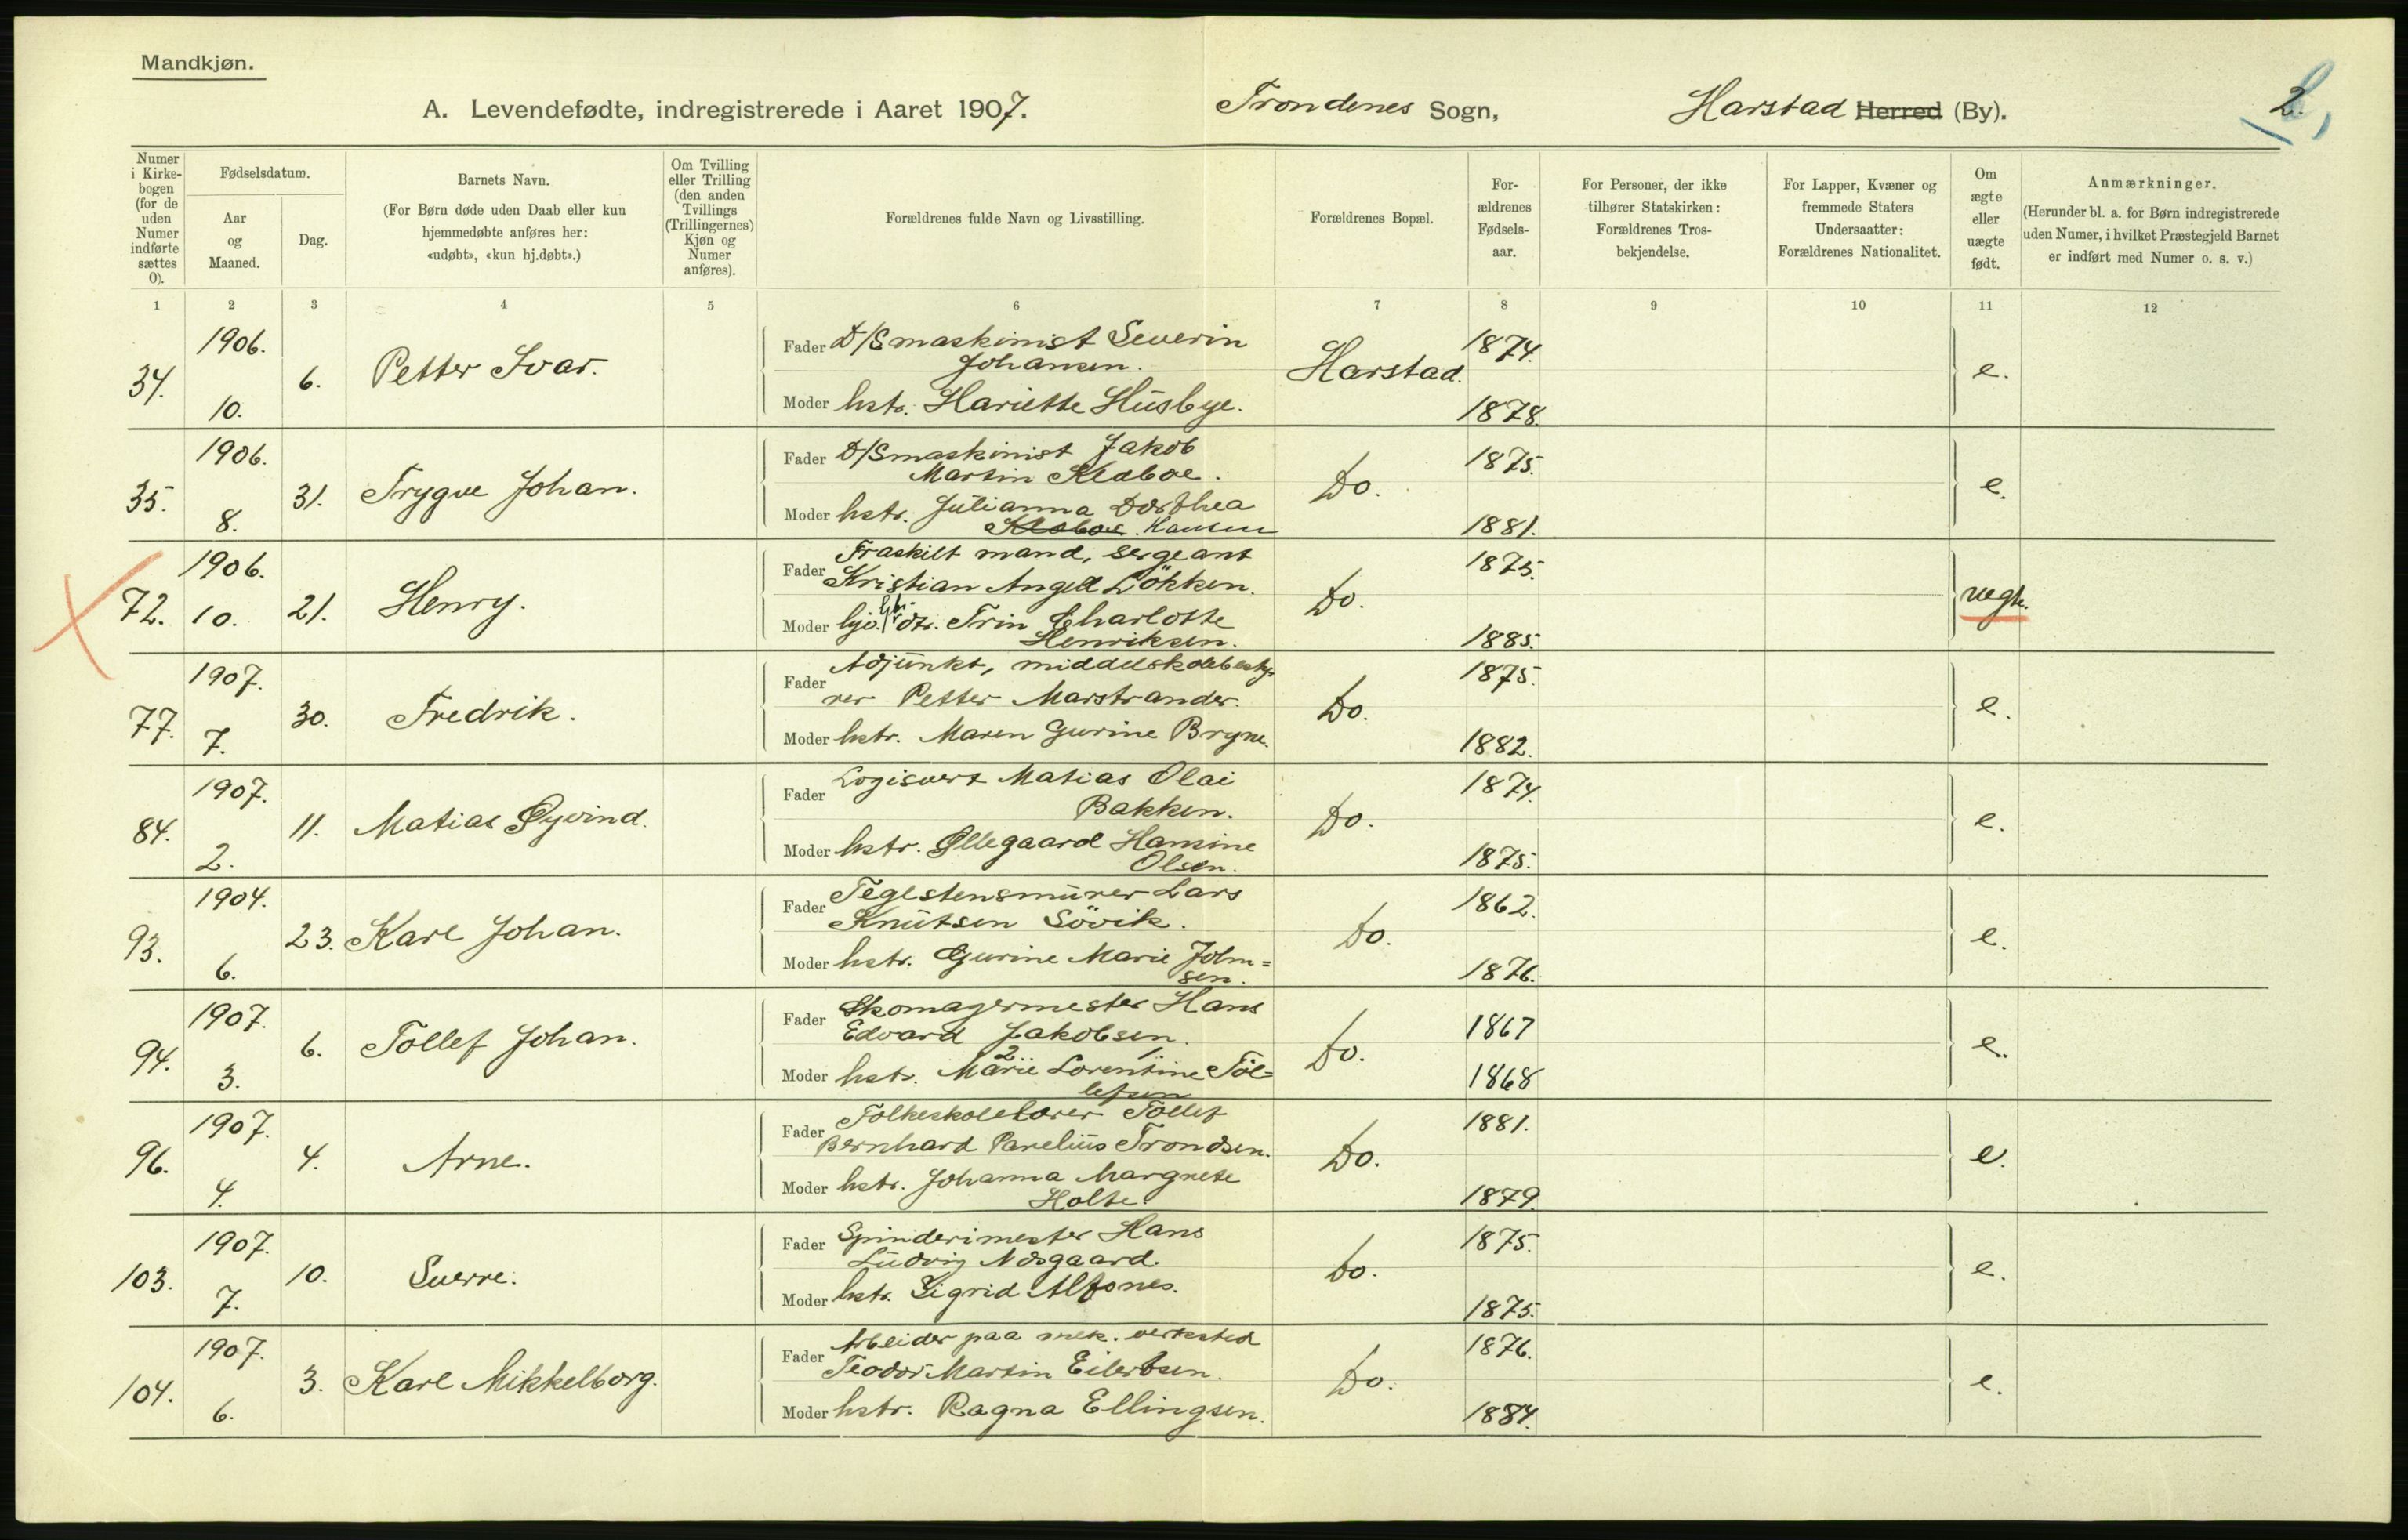 Mandkjøn.
A. Levendefødte, indregistrerede i Aaret 1907. Trondenes Sogn, Harstad Herred (By). 2.
Numer i Kirkebogen (for de uden Numer indførte sættes 0).
Fødselsdatum.
Aar og Maaned.
Dag.
Barnets Navn.
(For Børn døde uden Daab eller kun hjemmedøbte anføres her: «udøbt», «kun hj.døbt».)
Om Tvilling eller Trilling (den anden Tvillings (Trillingernes) Kjøn og Numer anføres).
Forældrenes fulde Navn og Livsstilling.
Forældrenes Bopæl.
Forældrenes Fødselsaar.
For Personer, der ikke tilhører Statskirken: Forældrenes Trosbekjendelse.
For Lapper, Kvæner og fremmede Staters Undersaatter: Forældrenes Nationalitet.
Om ægte eller uægte født.
Anmærkninger.
(Herunder bl. a. for Børn indregistrerede uden Numer, i hvilket Præstegjeld Barnet er indført med Numer o. s. v.)
1 2 3 4 5 6 7 8 9 10 11 12
34. 1906. 10. 6. Petter Ivar.
Fader D/Smaskinist Severin
Johansen. Harstad. 1874. e.
Moder hstr. Hariette Husbye. 1878.
35. 1906. 8. 31. Trygve Johan.
Fader D/Smaskinist Jakob
Martin Klaboe. Do. 1875. e.
Moder hstr. Julianna Dorthea
Klaboe. Hansen 1881.
72. 1906. 10. 21. Henry.
Fraskilt mand, sergeant
Fader Kristian Angell Lökken. Do. 1875. uegte.
Moder Trin Charlotte
Henriksen. 1885.
77. 1907. 7. 30. Fredrik.
Adjunkt, middelskolebesty-
Fader rer Petter Marstrander. Do. 1875. e.
Moder hstr. Maren Gurine Bryne. 1882.
84. 1907. 2. 11. Matias Øyvind.
Fader Logisvert Matias Olai
Bakken. Do. 1874. e.
Moder hstr. Øllegaard Hansine
Olsen. 1875.
93. 1904. 6. 23. Karl Johan.
Fader Teglstensmurer Lars
Knutsen Sövik. Do. 1862. e.
Moder hstr. Gurine Marie John=
sen. 1876.
94. 1907. 3. 6. Tollef Johan.
Fader Skomagermester Hans
Edvard Jakobsen. Do. 1867 e.
2. 1
Moder hstr. Marie Lorentine Tol=
lefsen 1868
96. 1907. 4. 4. Arne.
Fader Folkeskolelærer Tollef
Bernhard Parelius Trondsen. Do. 1881. e.
Moder hstr. Johanna Margrete
Holte. 1879.
103. 1907. 7. 10. Sverre.
Fader Spinderimester Hans
Ludvig Nosgaard. Do. 1875. e.
Moder hstr. Sigrid Alfsnes. 1875.
104. 1907. 6. 3. Karl Mikkelborg.
Fader Arbeider paa mek. verksted
Teodor Martin Eilertsen. Do. 1876. e.
Moder hstr. Ragna Ellingsen. 1884.